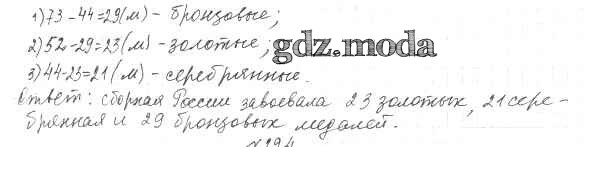 1) 73 - 44 = 29 (м) - бронзовые;
2) 52 - 29 = 23 (м) - золотые;
gdz.moda
3) 44 - 23 = 21 (м) - серебрянные.
Ответ: сборная России завоевала 23 золотых, 21 сере-
брянная и 29 бронзовых медалей.
№194